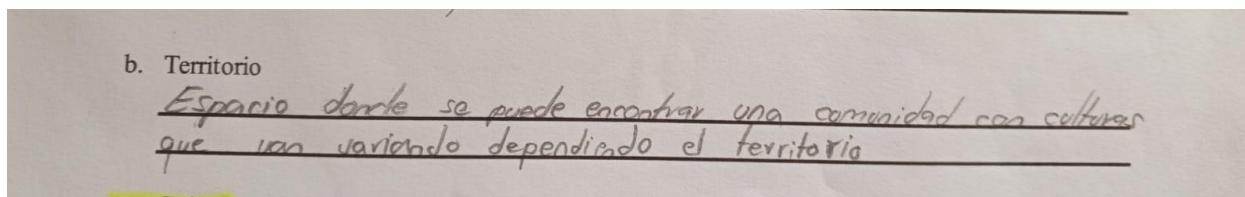 b. Territorio
Espacio donde se puede encontrar una comunidad con culturas
que van variando dependiendo el territorio